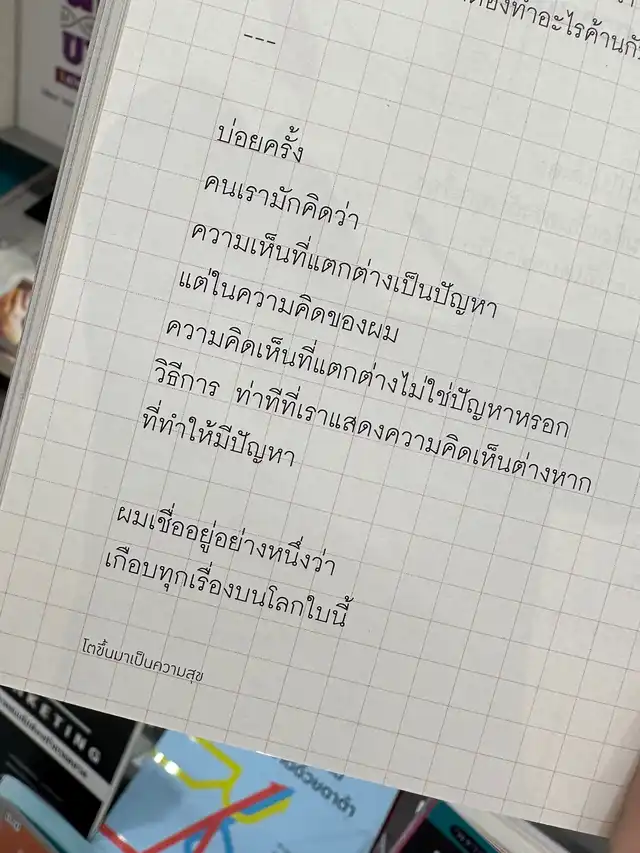 องทำอะไรค้านกั
---
บ่อยครั้ง
คนเรามักคิดว่า
ความเห็นที่แตกต่างเป็นปัญหา
แต่ในความคิดของผม
ความคิดเห็นที่แตกต่างไม่ใช่ปัญหาหรอก
วิธีการ ท่าทีที่เราแสดงความคิดเห็นต่างหาก
ที่ทำให้มีปัญหา
ผมเชื่ออยู่อย่างหนึ่งว่า
เกือบทุกเรื่องบนโลกใบนี้
โตขึ้นมาเป็นความสุข
RKETING